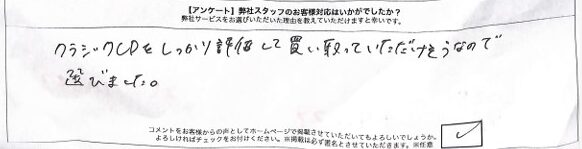 【アンケート】弊社スタッフのお客様対応はいかがでしたか？
弊社サービスをお選びいただいた理由を教えていただけますと幸いです。
クラシックCDをしっかり評価して買い取っていただけそうなので
選びました。
コメントをお客様からの声としてホームページで掲載させていただいてもよろしいでしょうか。
よろしければチェックをお付けください。※掲載は必ず匿名とさせていただきます。※任意